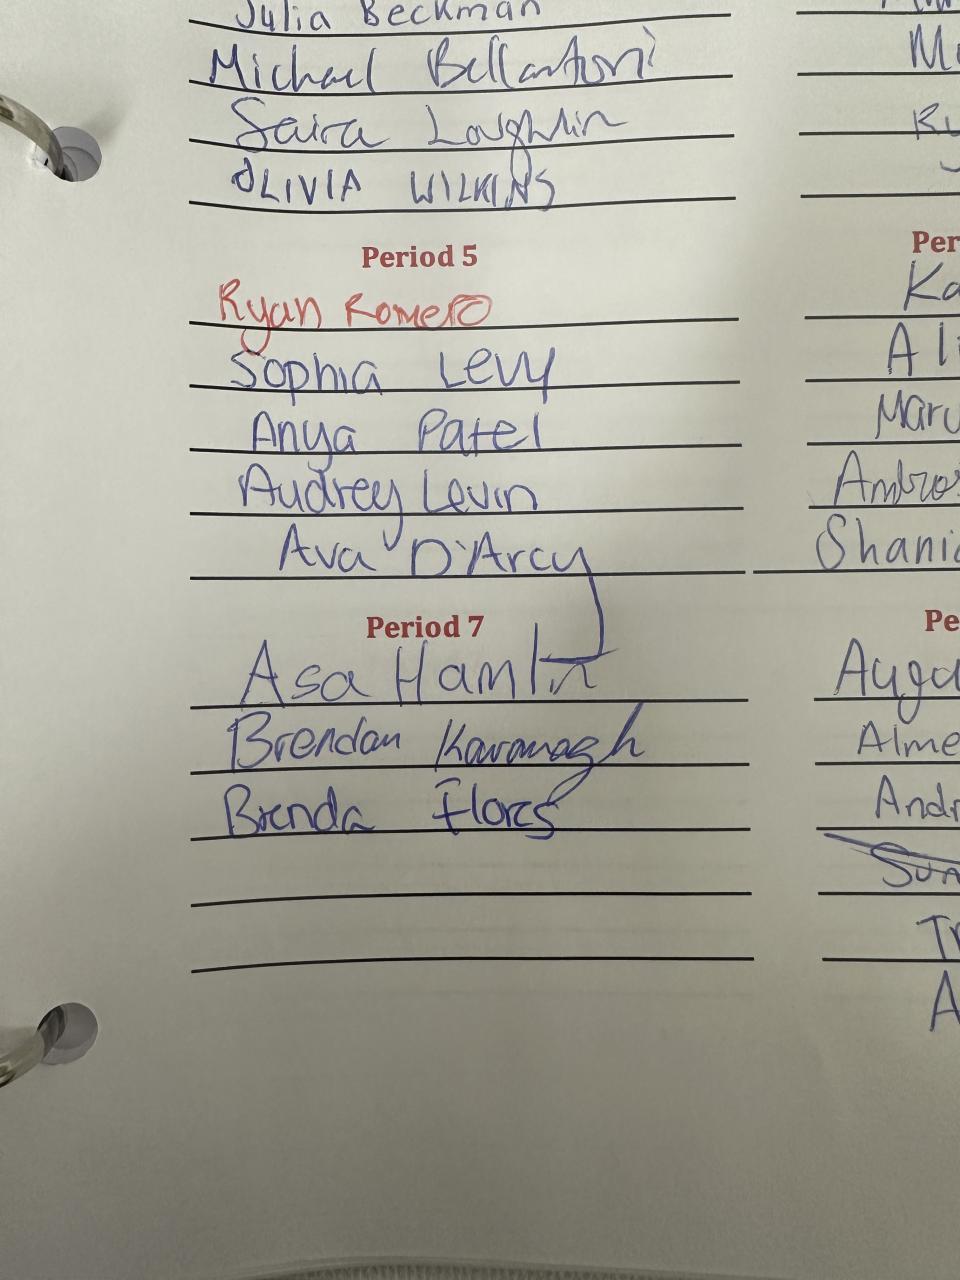 Julia Beckman
Michael Bellantoni
Saira Loughlin
OLIVIA WILKINS
Period 5
Ryan Romero
Sophia Levy
Anya Patel
Audrey Levin
Ava D'Arcy
Period 7
Asa Hamlin
Brendan Kavanagh
Brenda Flores
Per
Ka
Ali
Maru
Ambros
Shani
Pe
Augu
Alme
Andr
Sun
Tr
A